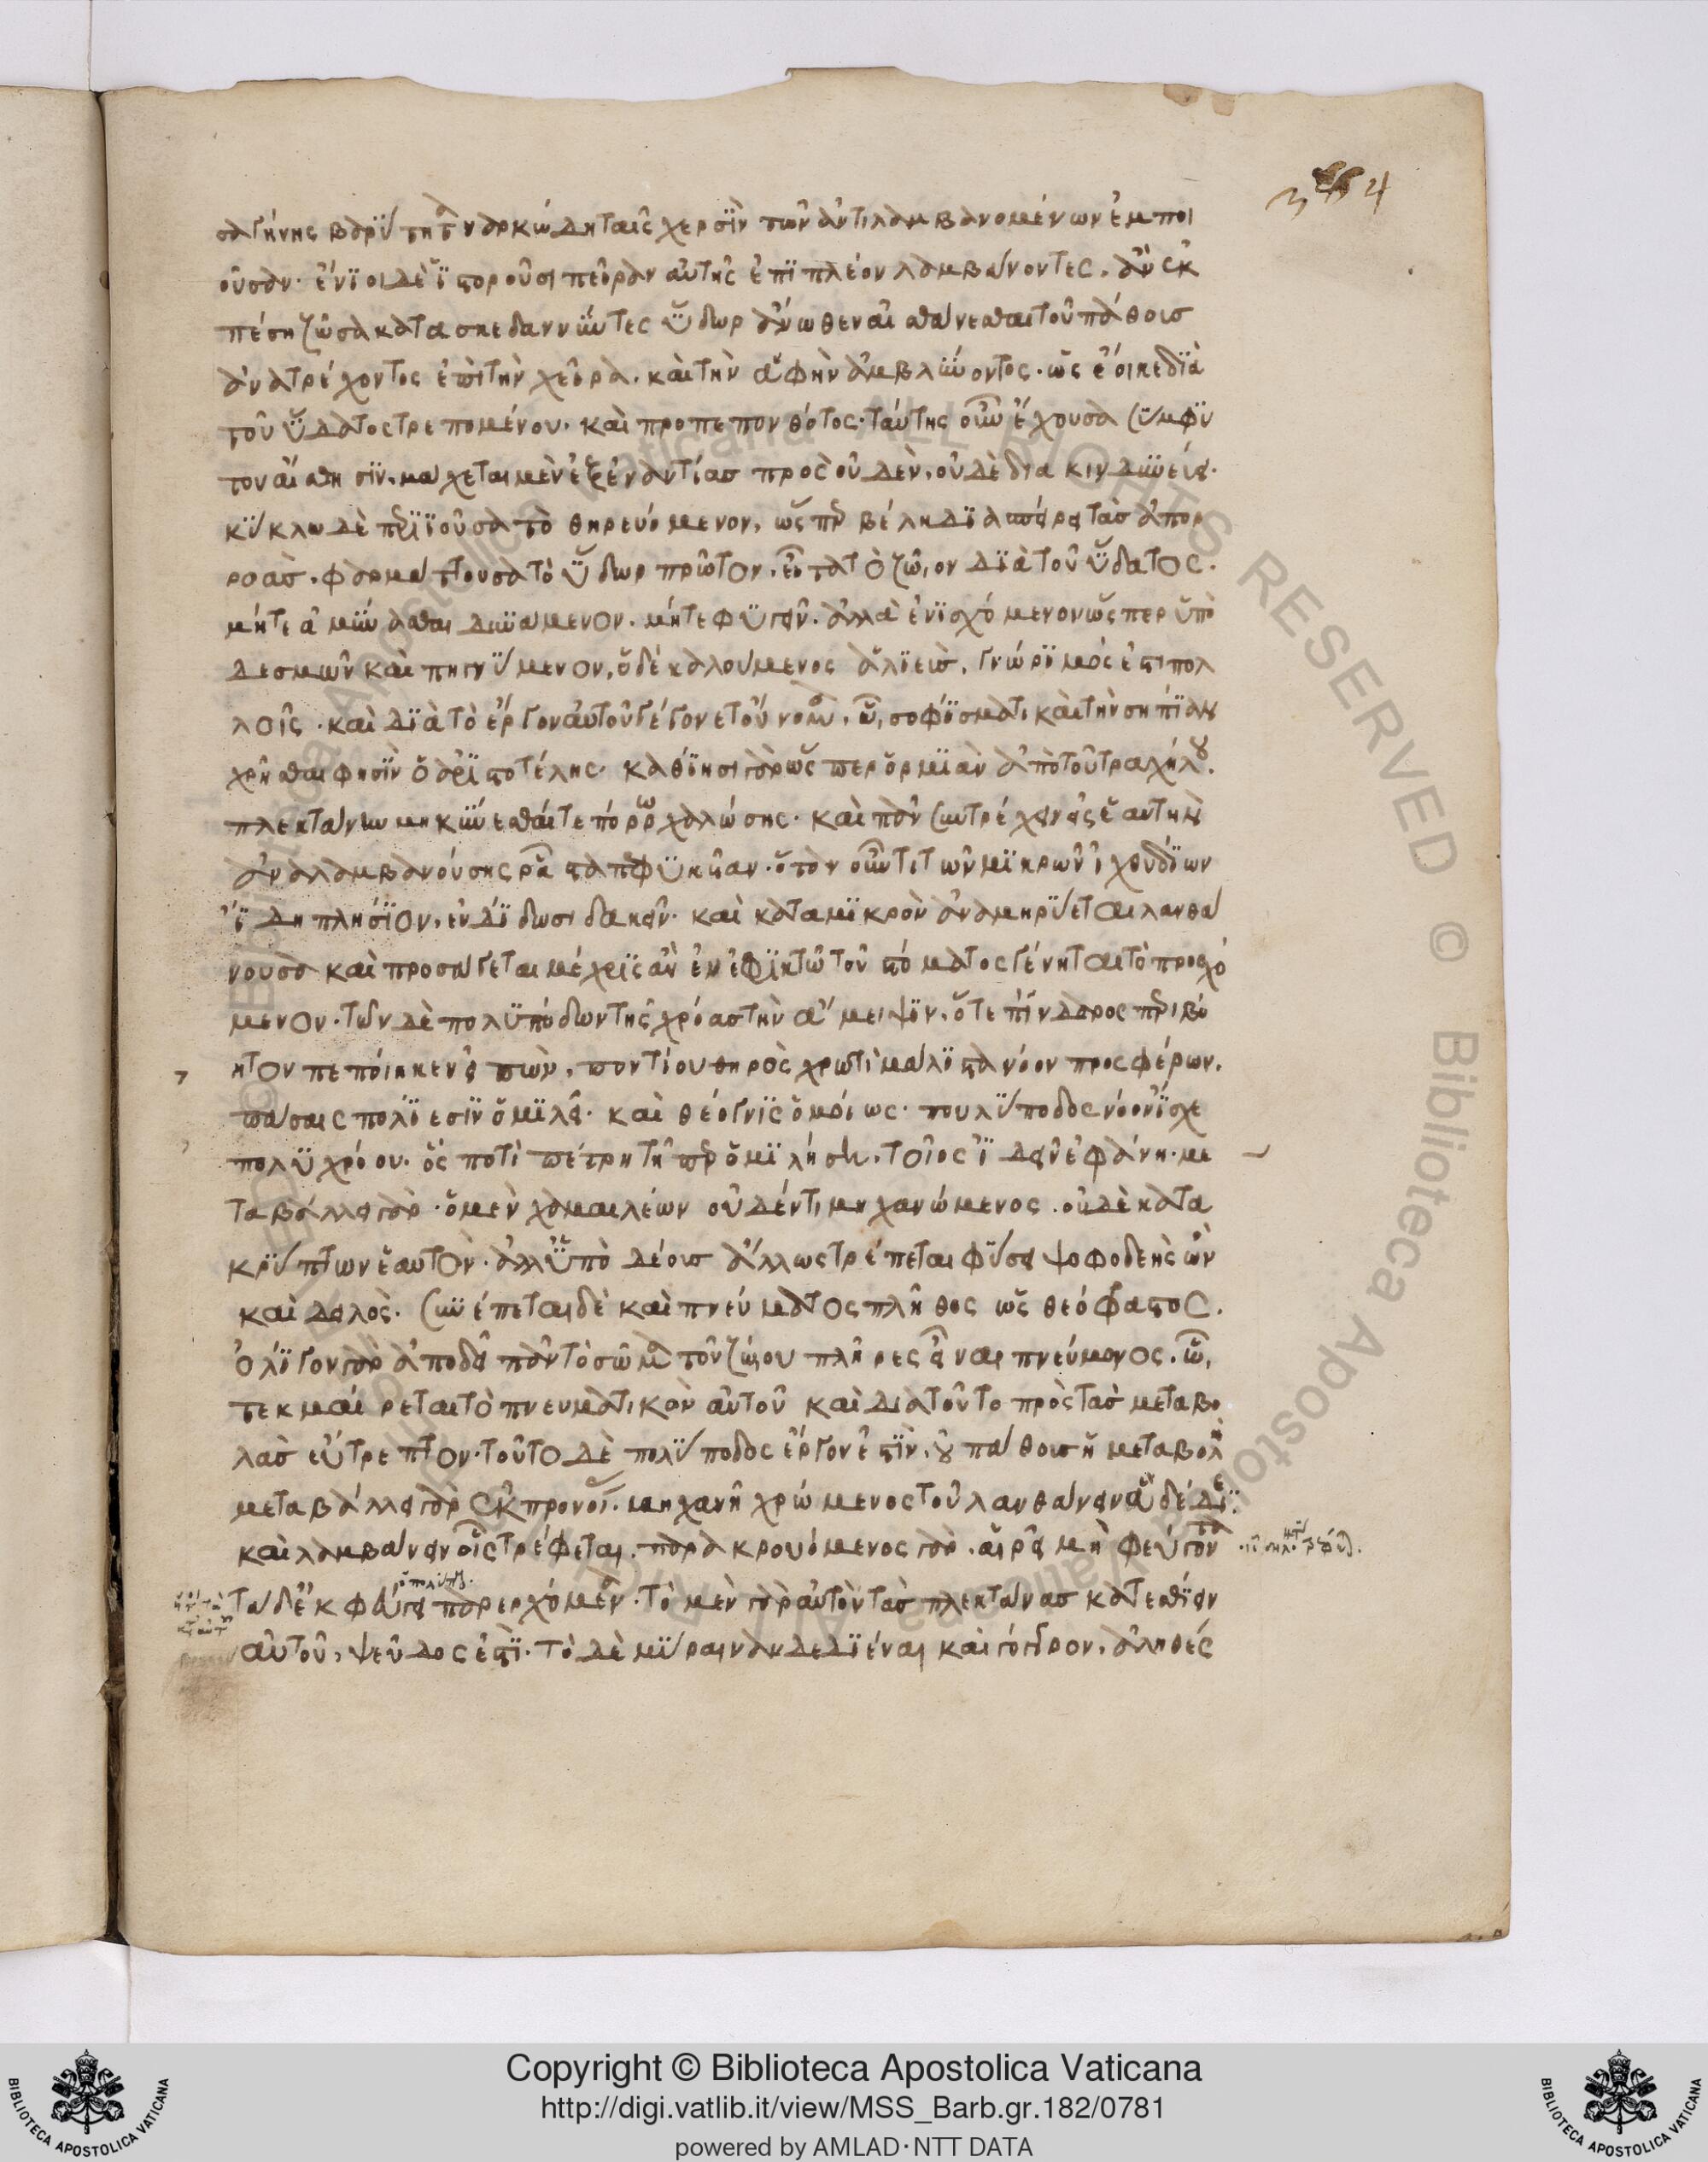 364
σαγήνης βαρύτητα ναρκώδη ταῖς χερσὶν τῶν ἀντιλαμβανομένων ἐμποι
οῦσαν· ἔνιοι δὲ ἱστοροῦσι πεῖραν αὐτῆς ἐπὶ πλέον λαμβάνοντες. ἂν ἐκ
πέσῃ ζῶσα κατασκεδαννύντες ὕδωρ ἄνωθεν αἰσθάνεσθαι τοῦ πάθους
ἀνατρέχοντος ἐπὶ τὴν χεῖρα. καὶ τὴν ἁφὴν ἀμβλύνοντος. ὡς ἔοικε διὰ
τοῦ ὕδατος τρεπομένου. καὶ προπεπονθότος· ταύτης οὖν ἔχουσα σύμφυ
τον αἴσθησιν. μάχεται μὲν ἐξεναντίας πρὸς οὐδὲν, οὐδὲ διακινδυνεύει·
κύκλῳ δὲ περιϊοῦσα τὸ θηρευόμενον, ὥσπερ βέλη διασπείρει τὰς ἀπορ
ροάς. φαρμάττουσα τὸ ὕδωρ πρῶτον. εἶτα τὸ ζῷον διὰ τοῦ ὕδατος.
μήτε ἀμύνασθαι δυνάμενον. μήτε φυγεῖν. ἀλλὰ ἐνισχόμενον ὥσπερ ὑπὸ
δεσμῶν καὶ πηγνύμενον, ὁ δὲ καλούμενος ἁλιεὺς. γνώριμός ἐστι πολ
λοῖς. καὶ διὰ τὸ ἔργον αὐτοῦ γέγονε τοὔνομα. ᾧ, σοφίσματι καὶ τὴν σηπίαν
χρῆσθαι φησὶν ὁ ἀριστοτέλης· καθίησι γὰρ ὥσπερ ὁρμιὰν ἀπὸ τοῦ τραχήλου.
πλεκτάνην μηκύνεσθαί τε πόρρω χαλώσης. καὶ πάλιν συντρέχειν εἰς ἑαυτὴν
ἀναλαμβανούσης ῥᾷστα πεφυκυῖαν. ὅταν οὖν τι τῶν μικρῶν ἰχθυδίων
ἴδῃ πλησίον, ἐνδίδωσι δακεῖν· καὶ κατὰ μικρὸν ἀναμηρύεται λανθά
νουσα καὶ προσάγεται μέχρις ἂν ἐν ἐφικτῷ τοῦ στόματος γένηται τὸ προσχό
μενον. τῶν δὲ πολυπόδων τῆς χρόας τὴν ἄμειψιν. ὅ τε πίνδαρος περιβό
ητον πεποίηκεν εἰπὼν. ποντίου θηρὸς χρωτὶ μάλιστα νόον προσφέρων.
πάσαις πολίεσιν ὁμιλεῖ. καὶ θέογνις ὁμοίως. πουλύποδος νόον ἴσχε
πολυχρόου. ὃς ποτὶ πέτρῃ τῇ περ ὁμιλήσῃ. τοῖος ἰδεῖν ἐφάνη. με
ταβάλλει γὰρ. ὁ μὲν χαμαιλέων οὐδέν τι μηχανώμενος. οὐδὲ κατα
κρύπτων ἑαυτὸν. ἀλλ' ὑπὸ δέους ἄλλως τρέπεται φύσει ψοφοδεὴς ὢν
καὶ δειλὸς. συνέπεται δὲ καὶ πνεύματος πλῆθος ὡς θεόφραστος.
ὀλίγον γὰρ ἀποδεῖ πᾶν τὸ σῶμα τοῦ ζῴου πλῆρες εἶναι πνεύμονος. ᾧ,
τεκμαίρεται τὸ πνευματικὸν αὐτοῦ καὶ διὰ τοῦτο πρὸς τὰς μεταβο
λὰς εὔτρεπτον. τοῦτο δὲ πολύποδος ἔργον ἐστὶν. οὐ πάθους ἡ μεταβολὴ
μεταβάλλει γὰρ ἐκ προνοίας. μηχανῇ χρώμενος τοῦ λανθάνειν ἃ δέδιε.
καὶ λαμβάνειν οἷς τρέφεται. παρακρουόμενος γὰρ. αἱρεῖ μὴ φεύγοντα
τὰ δὲ ἐκφεύγει παρερχόμενα. τὸ μὲν γὰρ αὐτὸν τὰς πλεκτάνας κατεσθίειν
αὐτοῦ, ψεῦδος ἐστὶ. τὸ δὲ μύραιναν δεδιέναι καὶ γόγγρον. ἀληθές
Copyright © Biblioteca Apostolica Vaticana
http://digi.vatlib.it/view/MSS_Barb.gr.182/0781
powered by AMLAD·NTT DATA
BIBLIOTECA APOSTOLICA VATICANA
BIBLIOTECA APOSTOLICA VATICANA